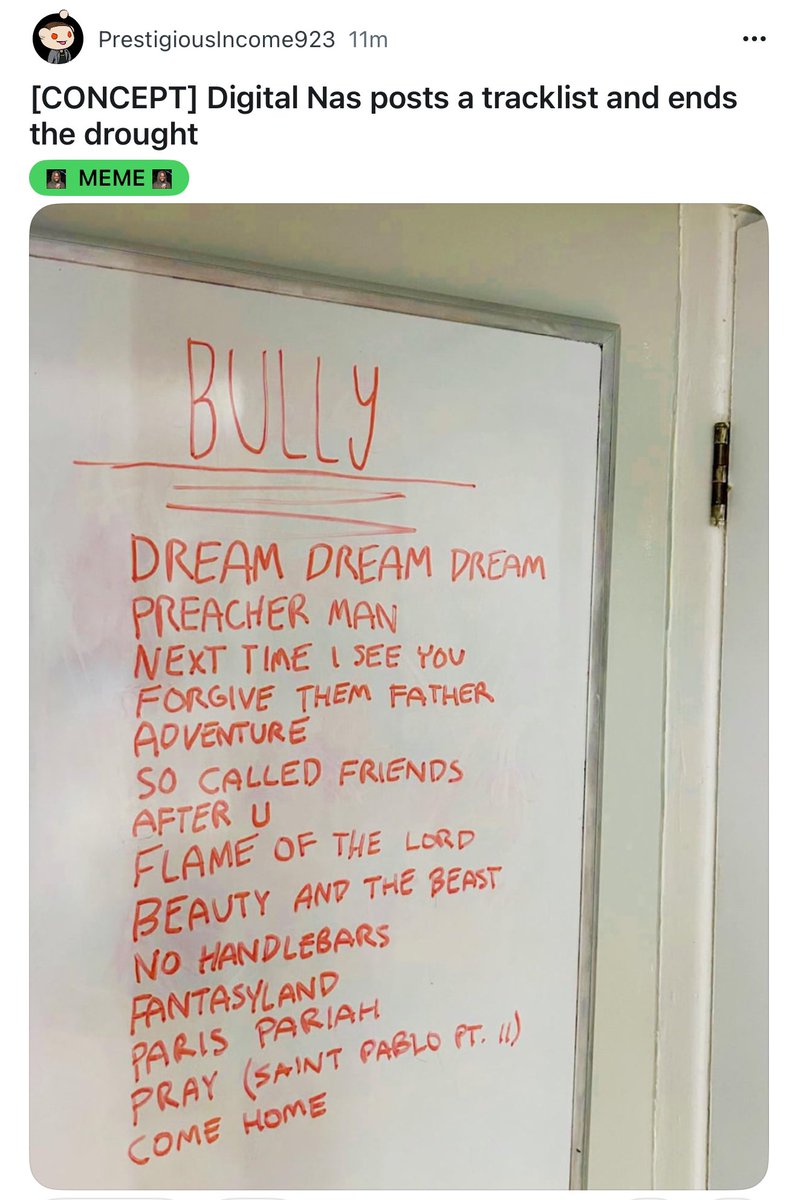 PrestigiousIncome923 11m
[CONCEPT] Digital Nas posts a tracklist and ends
the drought
MEME
BULLY
DREAM DREAM DREAM
PREACHER MAN
NEXT TIME I SEE YOU
FORGIVE THEM FATHER
ADVENTURE
SO CALLED FRIENDS
AFTER U
FLAME OF THE LORD
BEAUTY AND THE BEAST
NO HANDLEBARS
FANTASYLAND
PARIS PARIAH
PRAY (SAINT PABLO PT. II)
COME HOME